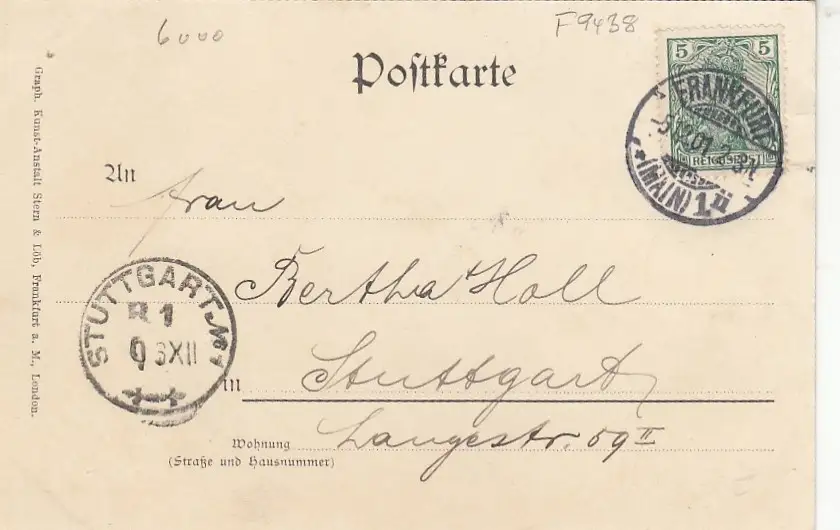 6000
F9438
Postkarte
5 5
REICHSPOST
FRANKFURT
(MAIN) 1
An Frau
Bertha Holl
in Stuttgart
Wohnung
(Straße und Hausnummer)
Langestr. 59 II
STUTTGART No 1
XII
Graph. Kunst-Anstalt Stern & Löb, Frankfurt a. M., London.